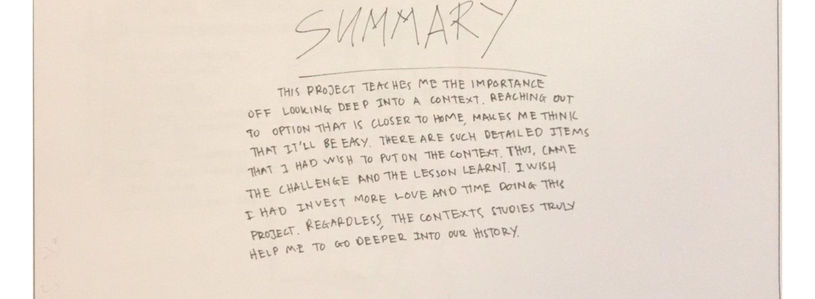 SUMMARY
THIS PROJECT TEACHES ME THE IMPORTANCE
OFF LOOKING DEEP INTO A CONTEXT. REACHING OUT
TO OPTION THAT IS CLOSER TO HOME, MAKES ME THINK
THAT IT'LL BE EASY. THERE ARE SUCH DETAILED ITEMS
THAT I HAD WISH TO PUT ON THE CONTEXT. THUS, CAME
THE CHALLENGE AND THE LESSON LEARNT. I WISH
I HAD INVEST MORE LOVE AND TIME DOING THIS
PROJECT. REGARDLESS, THE CONTEXTS STUDIES TRULY
HELP ME TO GO DEEPER INTO OUR HISTORY.